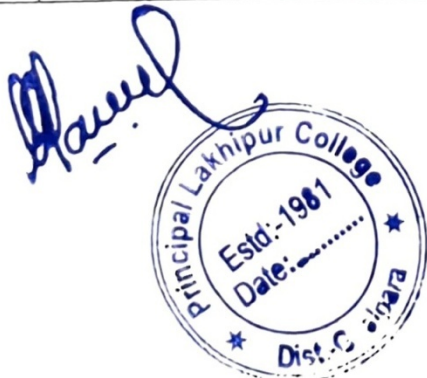 Principal Lakhipur College
Estd:-1981
Date:..........
Dist.-